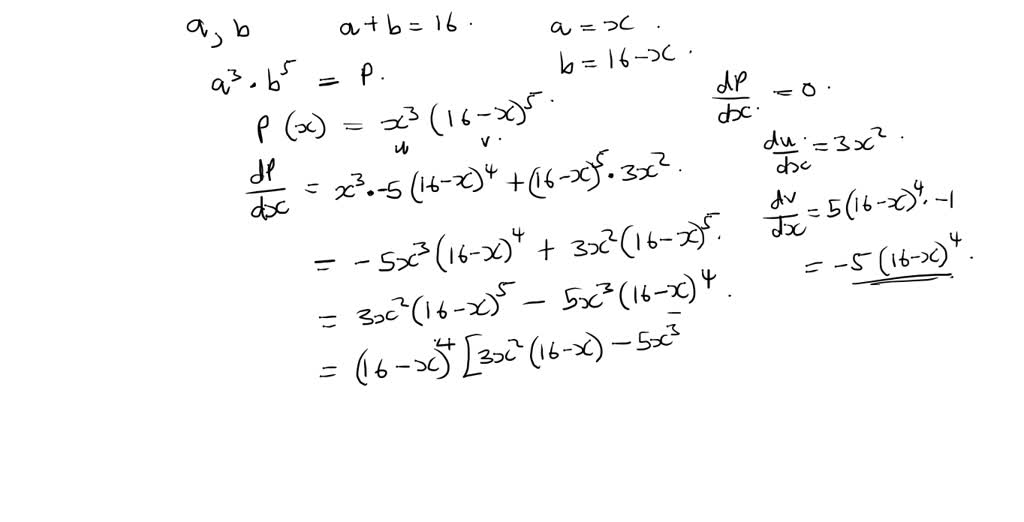 a, b    a + b = 16.    a = x.
b = 16 - x.
a³ · b⁵ = P.
dP/dx = 0.
P(x) = x³ (16-x)⁵.
u    v.
du/dx = 3x².
dP/dx = x³ · -5(16-x)⁴ + (16-x)⁵ · 3x².
dv/dx = 5(16-x)⁴ · -1
= -5x³(16-x)⁴ + 3x²(16-x)⁵.
= -5(16-x)⁴.
= 3x²(16-x)⁵ - 5x³(16-x)⁴.
= (16-x)⁴ [3x²(16-x) - 5x³